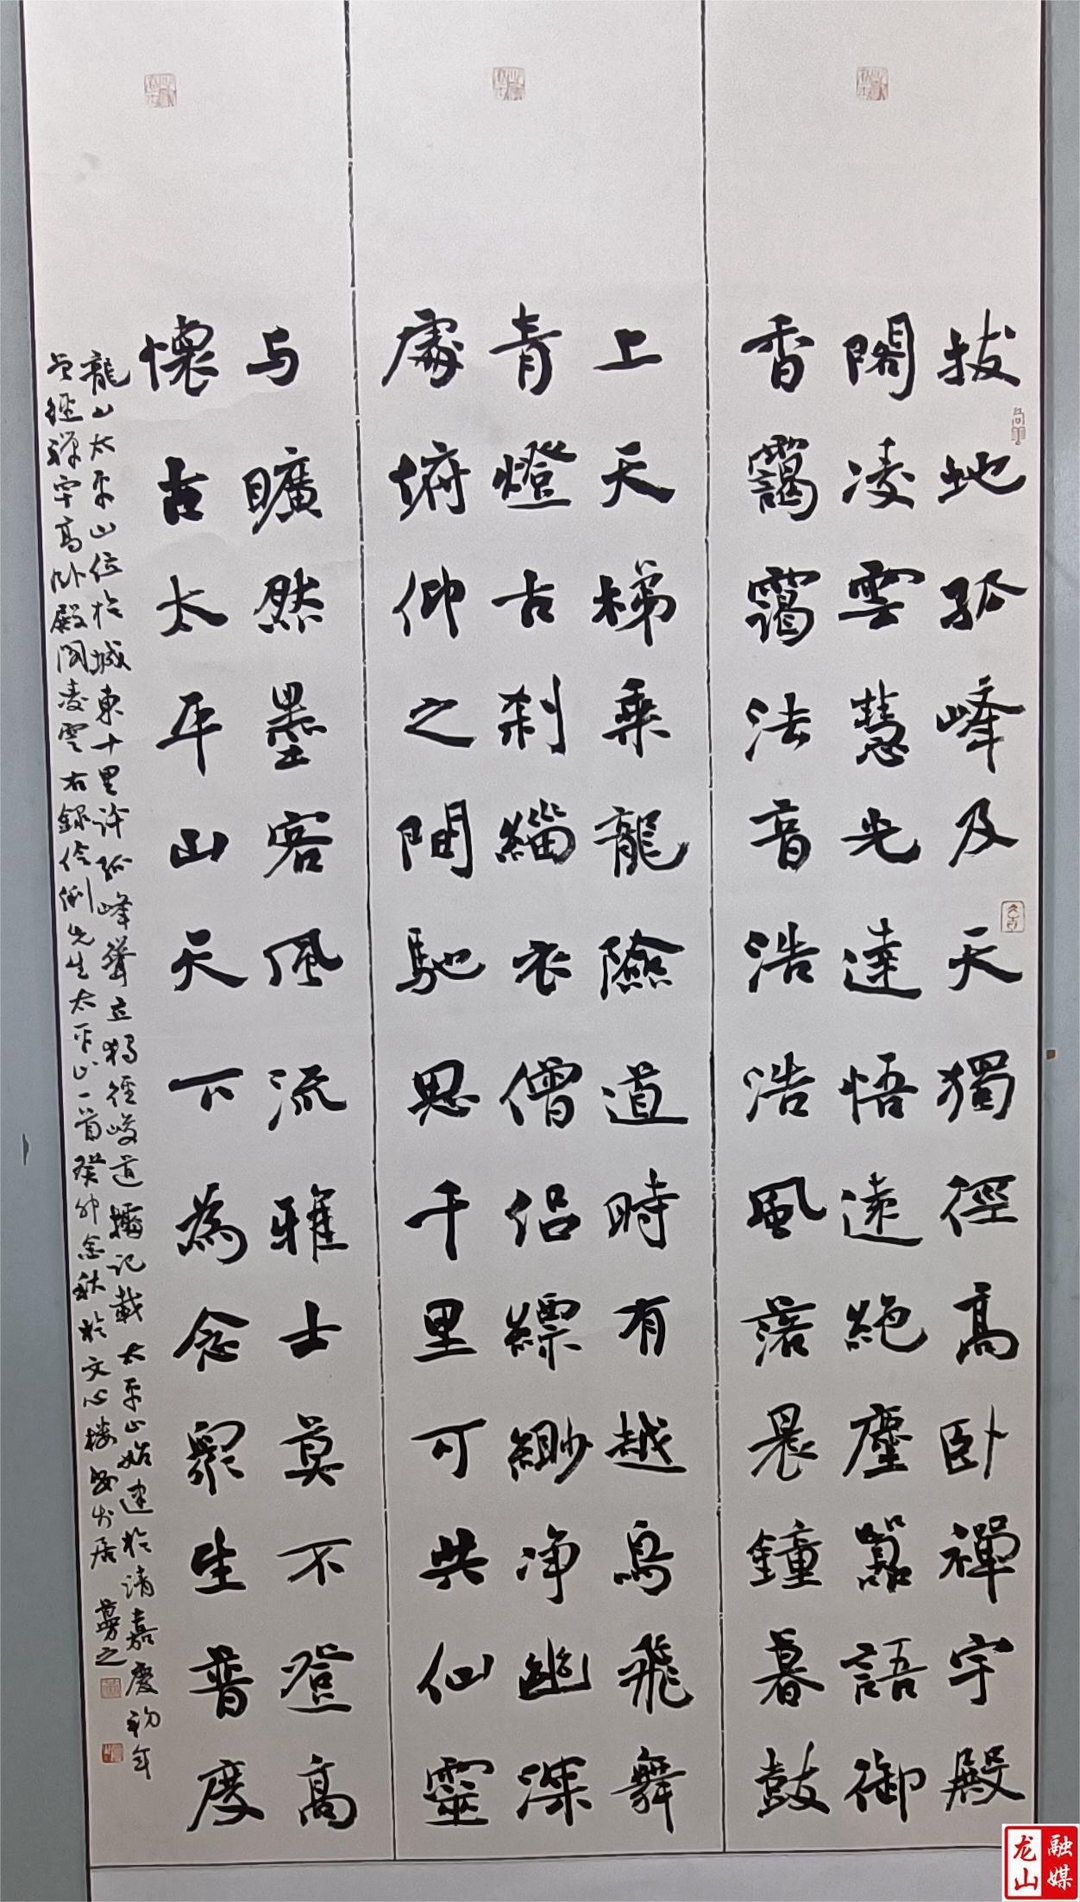 拔地孤峰及天獨徑高卧禪宇殿
閣凌雲慧光達悟遠絕塵囂語御
香靄靄法音浩浩風落晨鐘暮鼓
上天梯乘龍險道時有越鳥飛舞
青燈古刹緇衣僧侣縹緲净幽深
處俯仰之間馳思千里可共仙靈
与曠然墨客风流雅士莫不登高
懷古太平山天下為念眾生普度
龍山太平山位於城東十里许孤峰聳立獨徑峻道據记載太平山始建於清嘉慶初年
徑禪宇高卧殿閣凌雲右録伶俐先生太平山一首癸卯金秋於文心樓
龙山
融媒